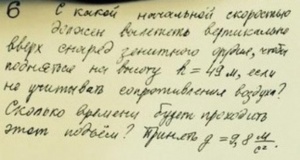 6 С какой начальной скоростью
должен вылететь вертикально
вверх снаряд зенитного орудия, чтобы
подняться на высоту h = 49 м, если
не учитывать сопротивления воздуха?
Сколько времени будет проходить
этот подъём? Принять g = 9,8 м/сс.